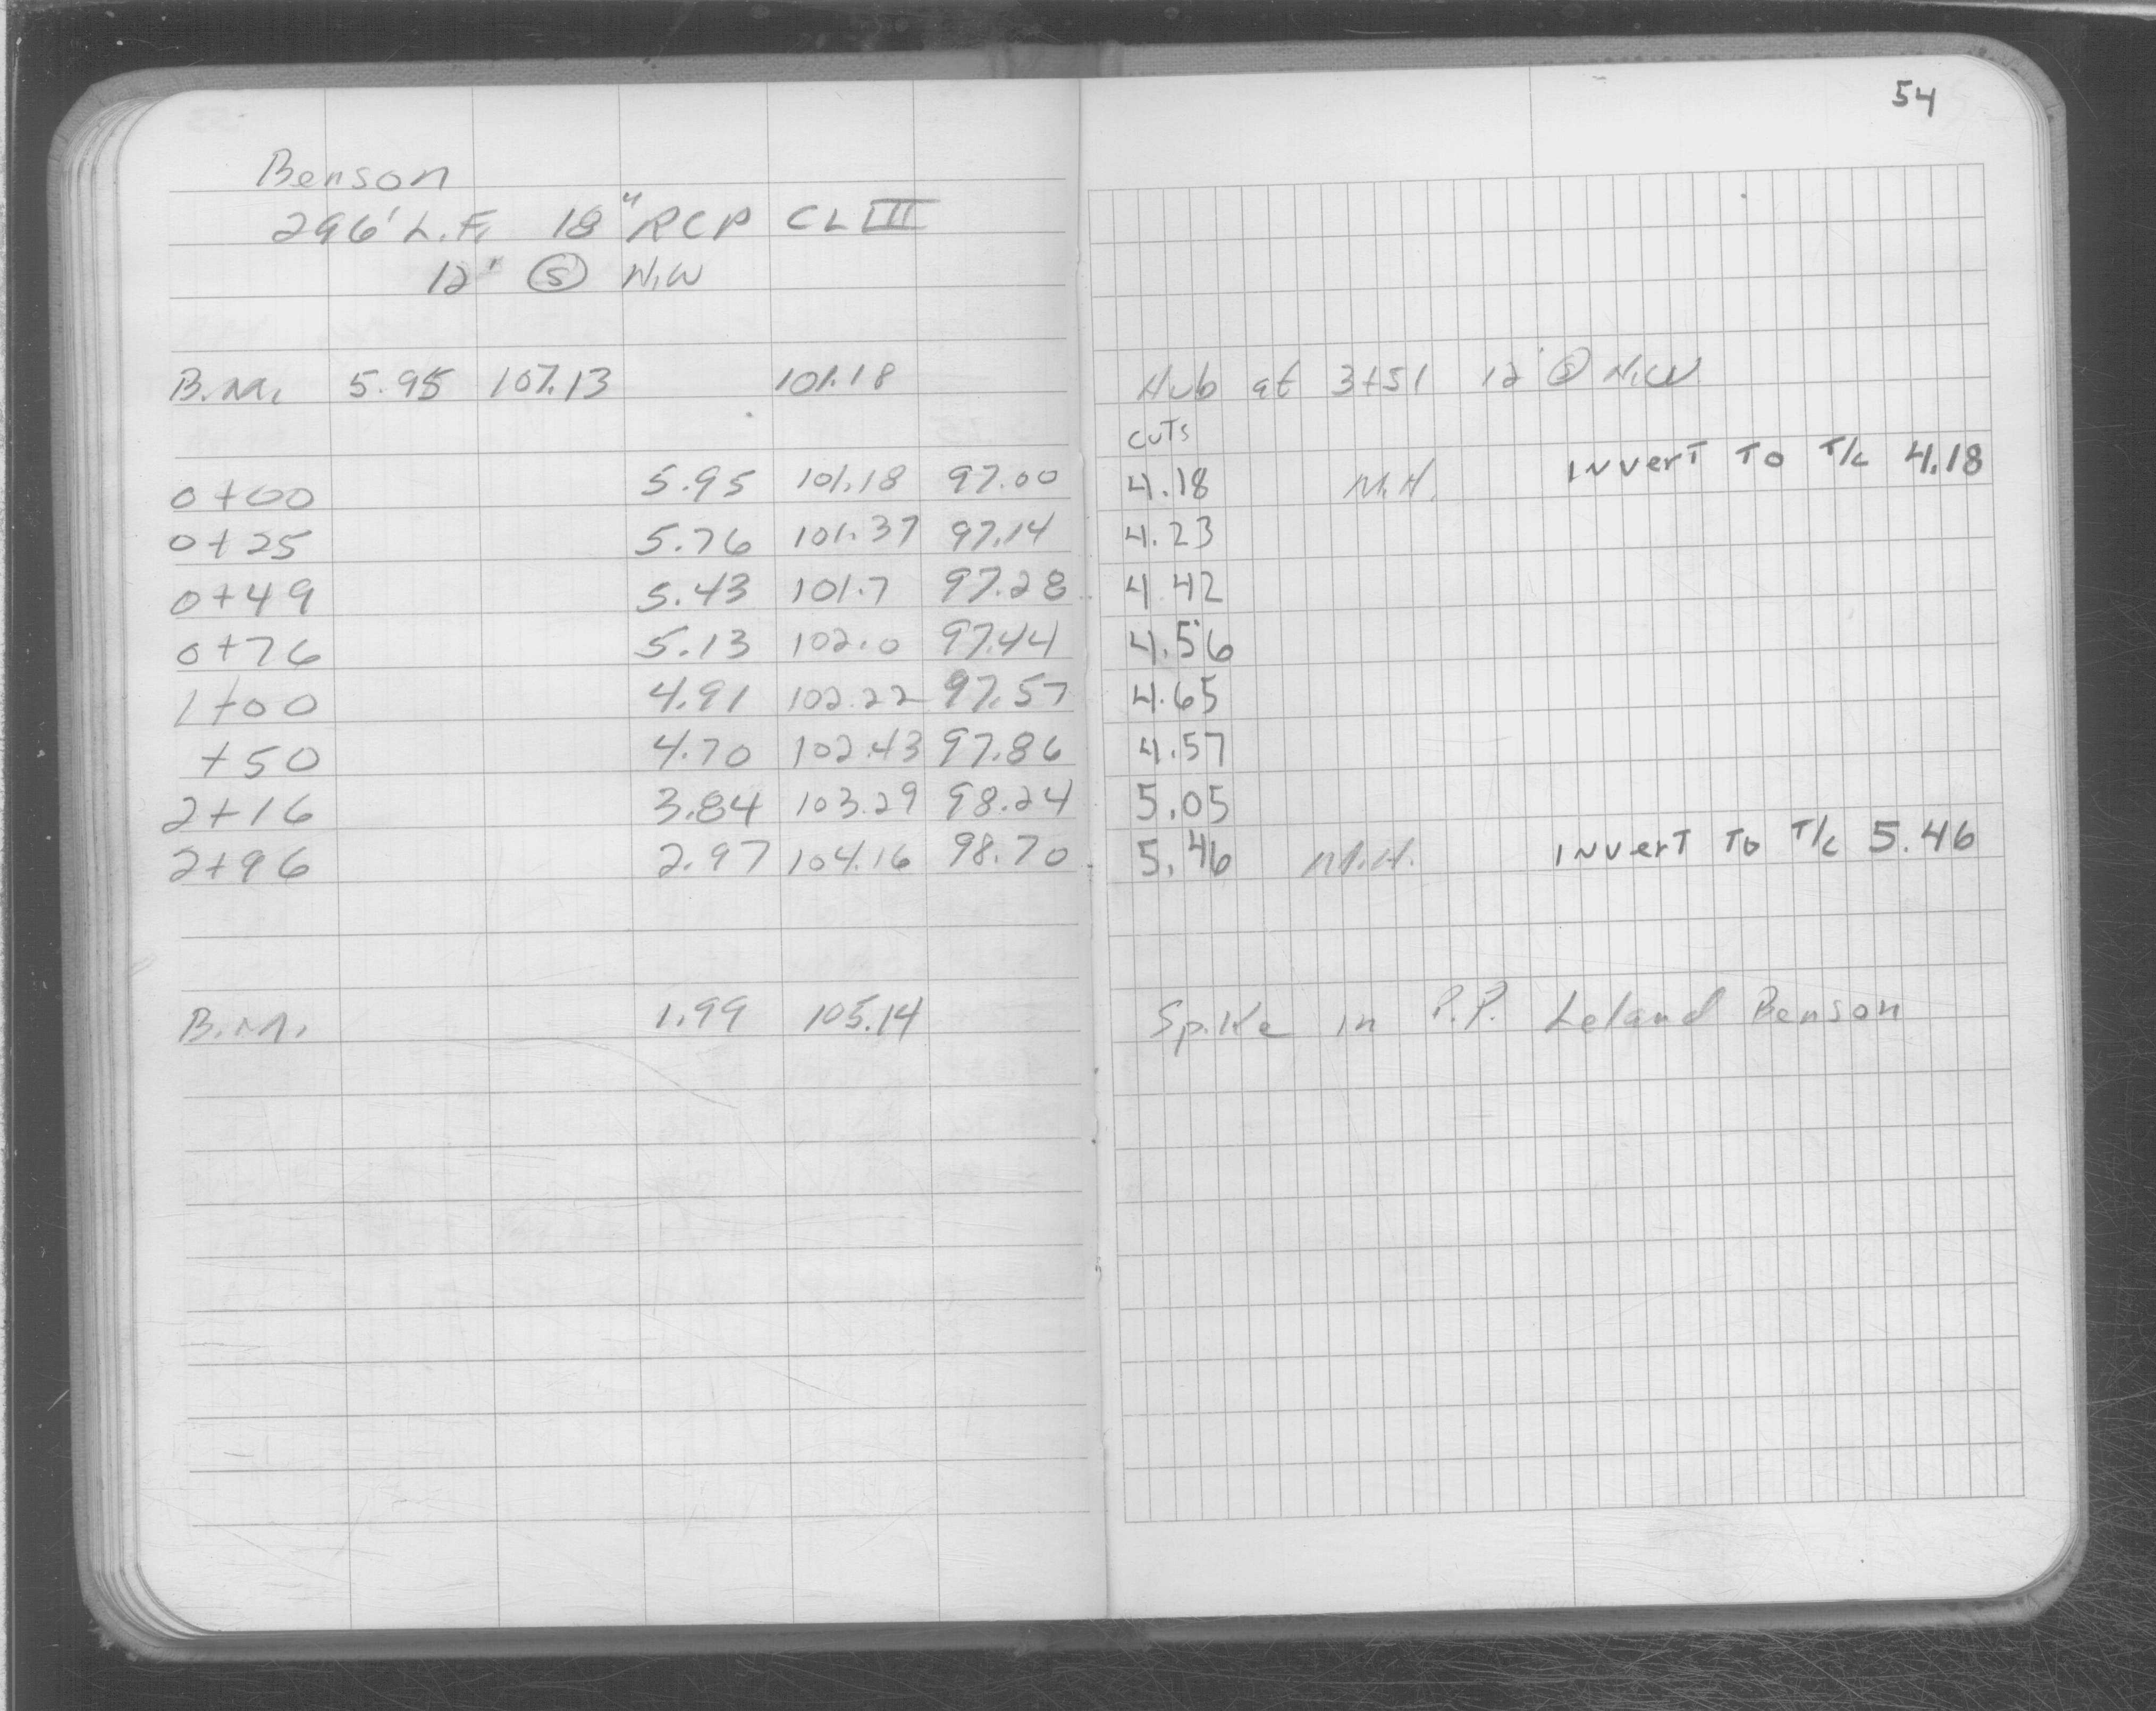 54
Benson
296' L.F. 18" RCP CL III
12' Ⓢ N.W
B.M. 5.95 107.13 101.18 Hub at 3+51 12' Ⓢ N.W
CUTS
0+00 5.95 101.18 97.00 4.18 M.H. INVERT TO T/C 4.18
0+25 5.76 101.37 97.14 4.23
0+49 5.43 101.7 97.28 4.42
0+76 5.13 102.0 97.44 4.56
1+00 4.91 102.22 97.57 4.65
+50 4.70 102.43 97.86 4.57
2+16 3.84 103.29 98.24 5.05
2+96 2.97 104.16 98.70 5.46 M.H. INVERT TO T/C 5.46
B.M. 1.99 105.14 Spike in P.P. Leland Benson